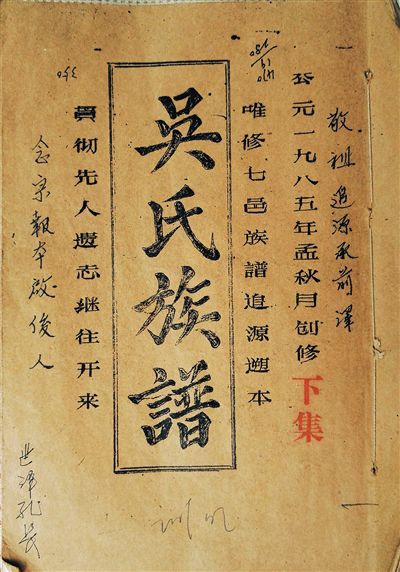 敬祖追源承前泽
公元一九八五年孟秋月创修
下集
唯修七邑族譜追源遡本
吳氏族譜
貫彻先人遗志继往开来
念宗報本啟俊人
世泽
长